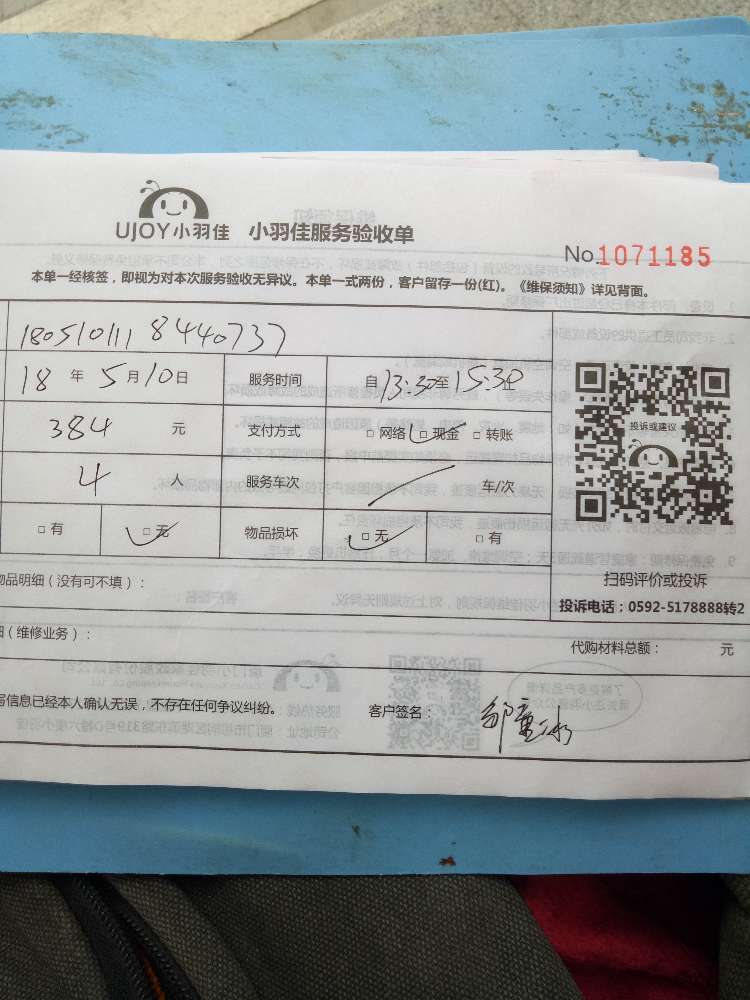 UJOY小羽佳 小羽佳服务验收单
No.1071185
本单一经核签，即视为对本次服务验收无异议。本单一式两份，客户留存一份(红)。《维保须知》详见背面。
180510111 8440737
18 年 5 月 10 日 服务时间 自 13:30 至 15:30 止
384 元 支付方式 □ 网络 □ 现金 □ 转账
投诉或建议
4 人 服务车次 车/次
□ 有 □ 无 物品损坏 □ 无 □ 有
扫码评价或投诉
物品明细（没有可不填）：
投诉电话：0592-5178888转2
（维修业务）：
代购材料总额： 元
信息已经本人确认无误，不存在任何争议纠纷。 客户签名：